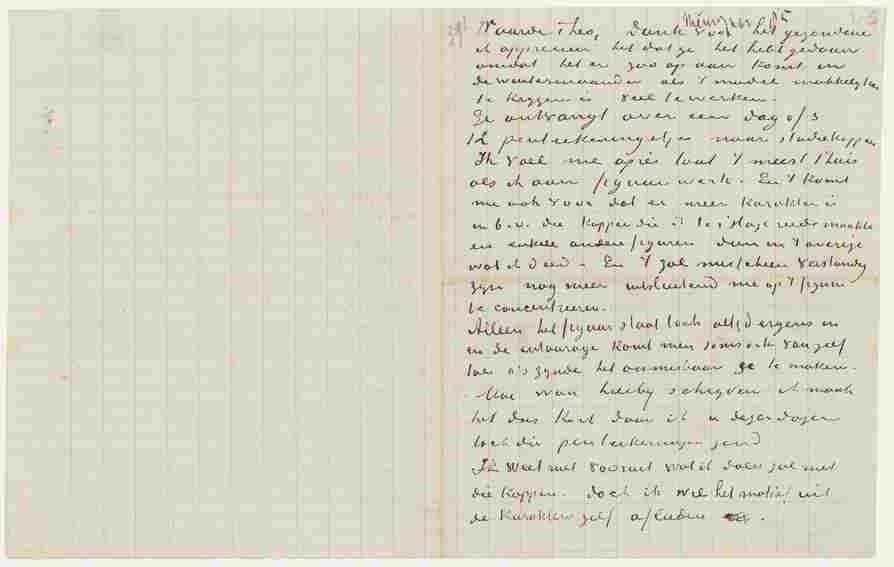 Waarde Theo, Dank voor het gezondene
ik apprecieer het dat ge het hebt gedaan
omdat het er zoo op aan komt en
de wintermaanden als 't model makkelyker
te krygen is veel te werken.
Ge ontvangt over een dag of 3
12 penteekeningetjes naar studiekoppen
Ik voel me après tout 't meest thuis
als ik aan figuur werk. En 't komt
me ook voor dat er meer karakter is
in b.v. die koppen die ik te s'Hage reeds maakte
en enkele andere figuren dan in 't overige
wat ik deed. En 't zal misschien verstandig
zyn nog meer uitsluitend me op 't figuur
te concentreeren.
Alleen het figuur staat toch altijd ergens in
en de entourage komt men soms ook van zelf
toe als zynde het onmisbaar te maken.
Moe wou hierby schryven ik maak
het dus kort daar ik u dezer dagen
toch die penteekeningen zend
Ik weet niet vooruit wat ik doen zal met
die koppen. doch ik wil het motief uit
de karakters zelf afleiden.